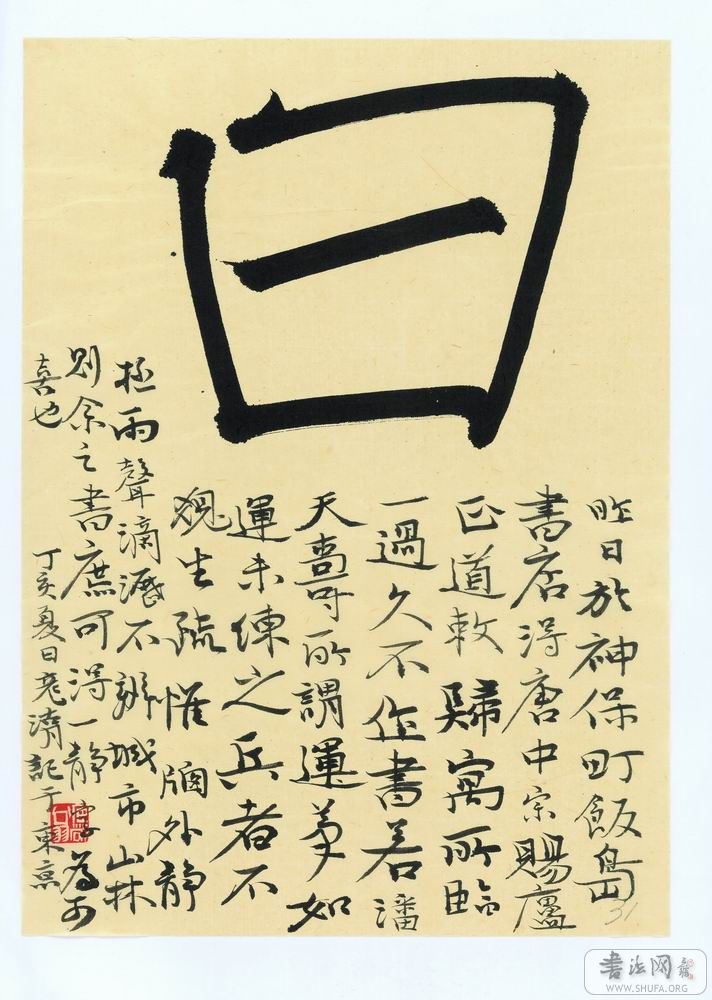 曰
昨日於神保町飯島
書店得唐中宗賜盧
正道敕歸寓所臨
一過久不作書若潘
天壽所謂運筆如
運未練之兵者不
生疏惟牖外靜
極雨聲滴瀝不辨城市山林
則余之書庶可得一靜字為可
喜也
丁亥夏日濟記于東京
31
書法网
WWW.SHUFA.ORG